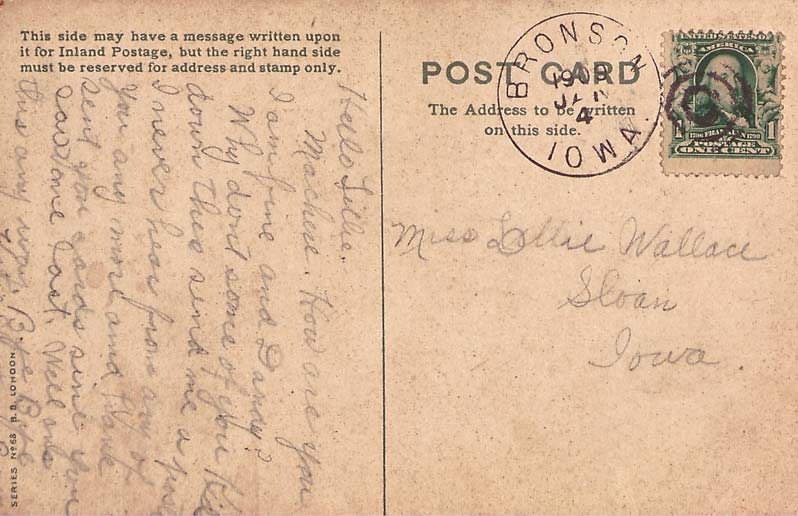 This side may have a message written upon
it for Inland Postage, but the right hand side
must be reserved for address and stamp only.
POST CARD
The Address to be written
on this side.
BRONSON
1909
JAN
4
IOWA
AMERICA
FRANKLIN
1706 1790
POSTAGE
ONE CENT
1 1
Miss Lillie Wallace
Sloan
Iowa.
Hello Lillie.
How are you
I am fine and Dandy?
Why don't some of you
down there send me a
I never hear from any of
you any more and I
sent you cards since you
last. Well
this any way. Bye Bye
SERIES Nº 68 B.B. LONDON.